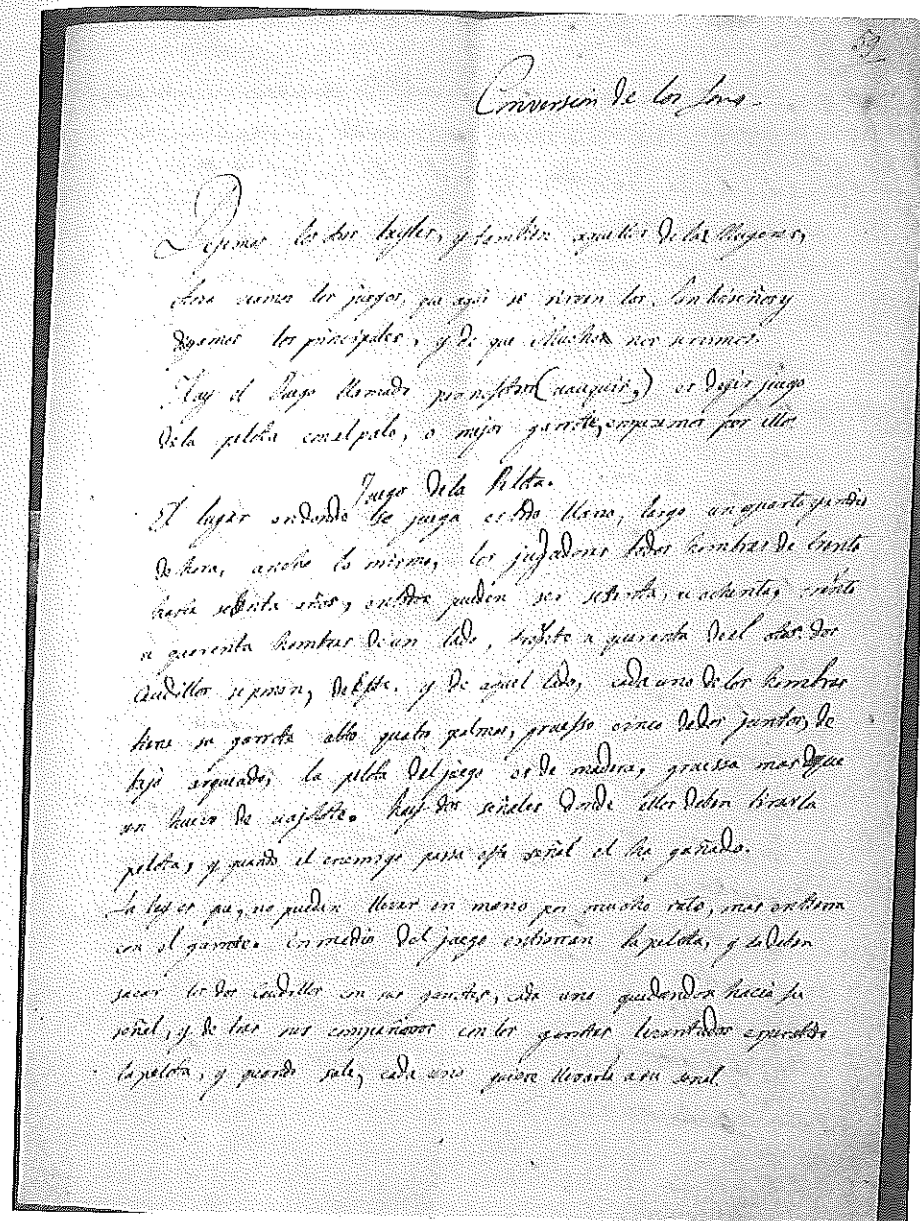 52
Conversion de los
Dejemos los dos bayles, y tambien aquellos de las Mugeres,
Aora veamos los juegos, que aqui se sirven los San Luiseños y
digamos los principales, y de que Muchos nos servimos.
Hay el Juego llamado por nosotros ( ) es dezir juego
dela pelota con el palo, o mejor garrote, empezemos por ellos
Juego dela Pelota.
El lugar en donde se juega es todo llano, largo un quarto y
de hora, ancho lo mismo, los jugadores todos hombres de trenta
hasta años, en todos pueden ser setenta, u ochenta, trenta
u quarenta hombres de un lado, trenta u quarenta de el otro dos
Caudillos se ponen, de este, y de aquel lado, cada uno de los hombres
tiene su garrote alto quatro palmos, gruesso cinco dedos juntos, de
bajo arqueado, la pelota del juego es de madera, gruessa mas que
un huevo de Hay dos señales donde ellos deben tirar la
pelota, y quando el enemigo passa este señal el ha gañado.
La ley es que, no pueden llevar en mano por mucho rato, mas en tierra
con el garrote. En medio del juego entierran la pelota, y la deben
sacar los dos Caudillos con sus garrotes, cada uno hacia su
señal, y de tras sus compañeros con los garrotes levantados esperando
la pelota, y quando sale, cada uno quiere llevarla a su señal.